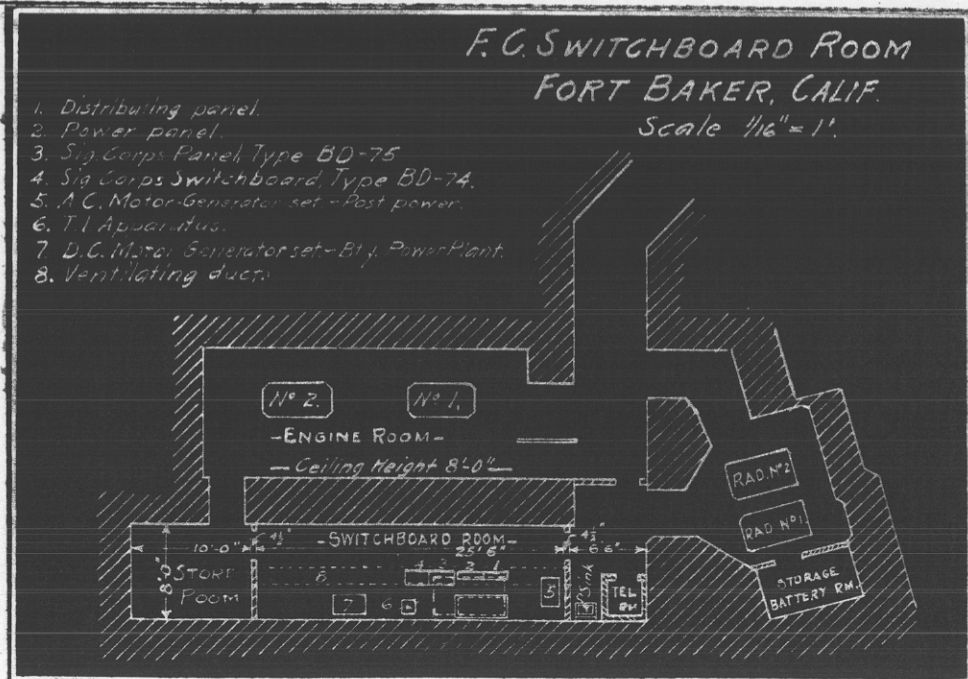 F.C. SWITCHBOARD ROOM
FORT BAKER, CALIF.
Scale 1/16" = 1'.
1. Distributing panel.
2. Power panel.
3. Sig. Corps Panel, Type BD-75
4. Sig Corps Switchboard, Type BD-74.
5. A C. Motor-Generator set - Post power.
6. T.I Apparatus.
7. D.C. Motor Generator set - Bty. Power Plant.
8. Ventilating ducts
Nº 2.
Nº 1.
-ENGINE ROOM-
- Ceiling Height 8'-0" -
RAD. Nº2
RAD. Nº1
10'-0"
4½"
-SWITCHBOARD ROOM-
25'6"
4½"
6'6"
8'-0"
STORE
ROOM
8
4
3
2
1
7
6
5
Sink
TEL
RM
STORAGE
BATTERY RM.